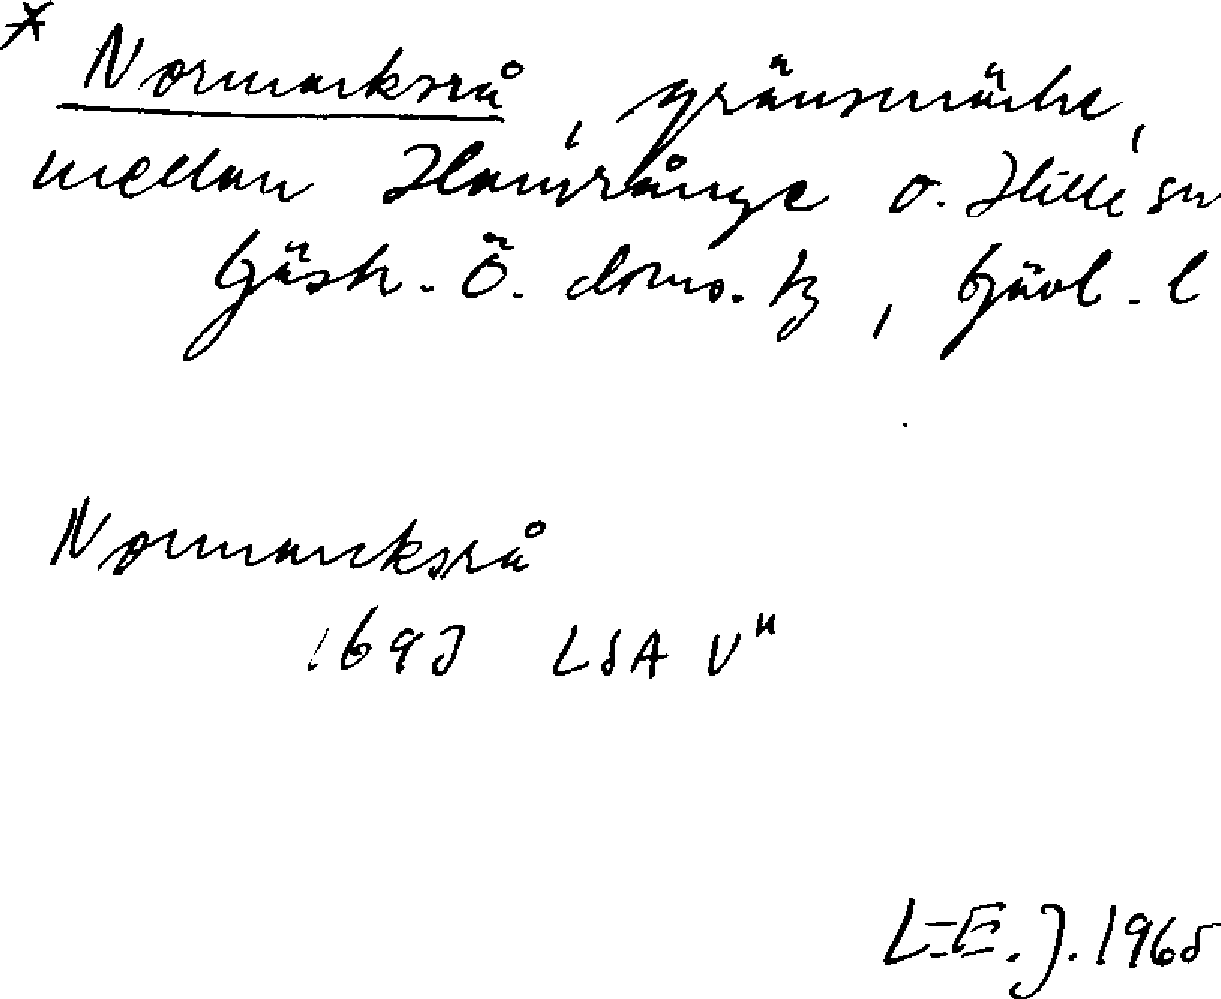 * Normarksrå, gränsmärke,
mellan Hamrånge o. Hille sn
Gästr. Ö. doms. tg, Gävl. l
Normarksrå
1693 LSA V"
L-E. J. 1965